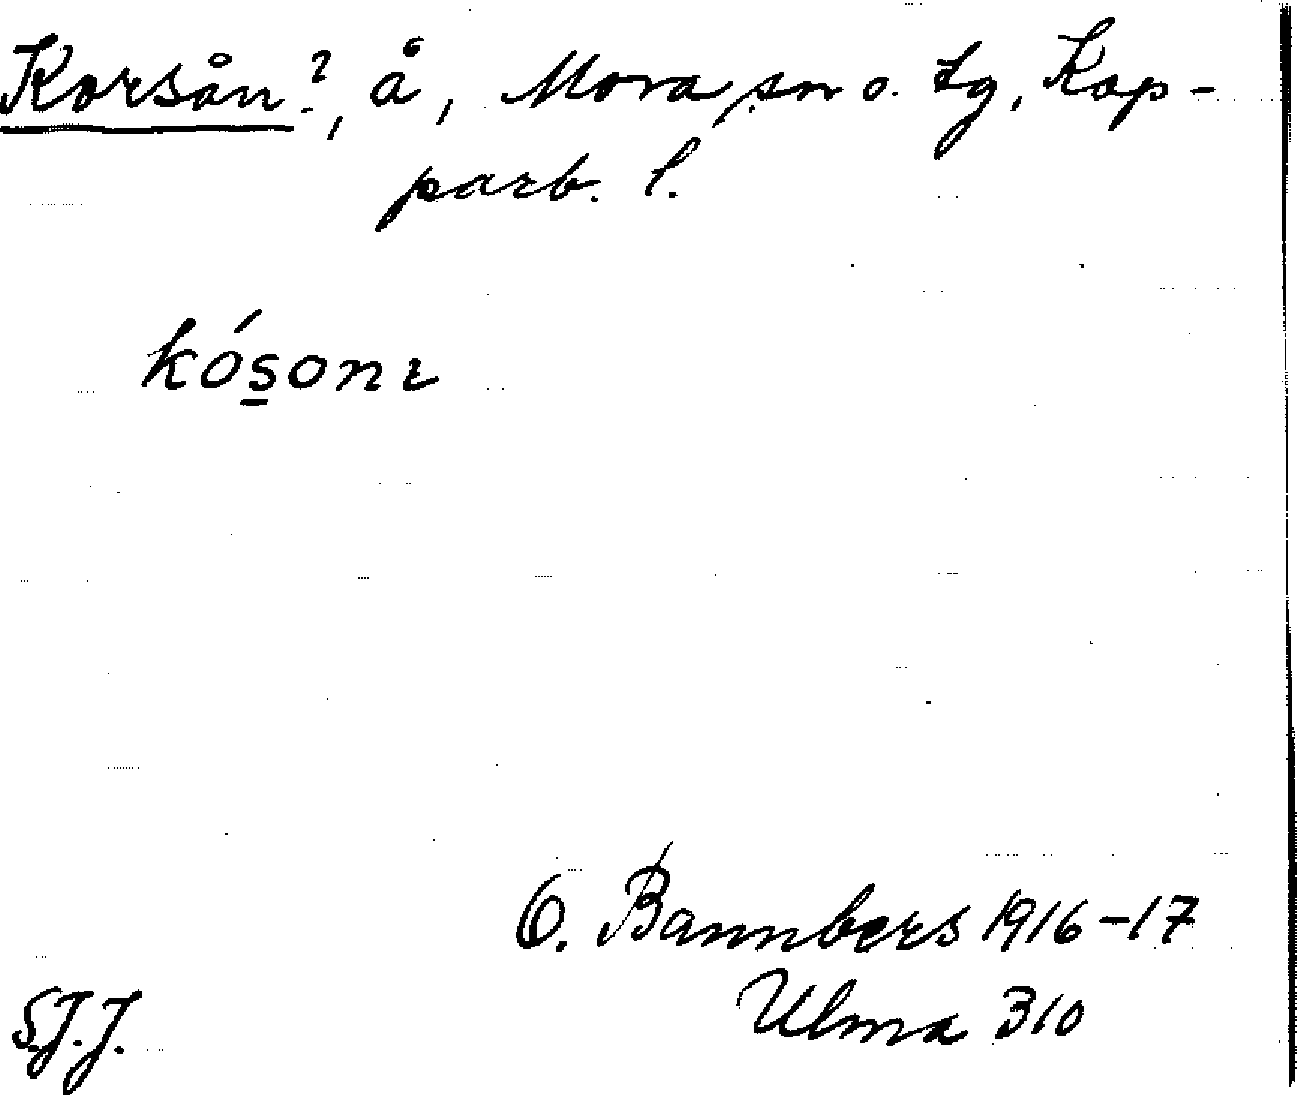 Korsån?, å, Mora sn o. tg, Kop-
parb. l.
kósonɩ
O. Bannbers 1916-17
Ulma 310
S.J.J.